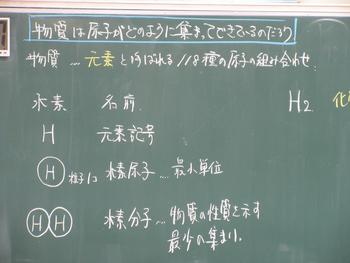 物質は原子がどのように集まってできているのだろう
物質 … 元素と呼ばれる118種の原子の組み合わせ.
水素 名前. H₂ 化
H 元素記号
H 粒子1コ 水素原子 … 最小単位
HH 水素分子 … 物質の性質を示す
最少の集まり.